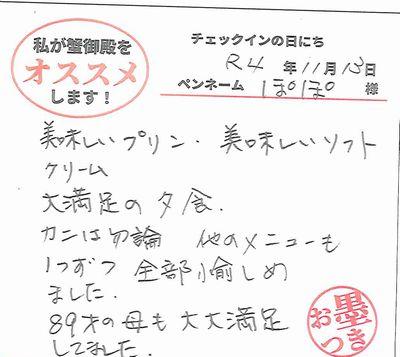 私が蟹御殿を
オススメ
します！
チェックインの日にち
R4 年 11月 13日
ペンネーム ぽぽ 様
美味しいプリン・美味しいソフト
クリーム
大満足の夕食.
カニは勿論 他のメニューも
1つずつ 全部愉しめ
ました.
89才の母も大大満足
してました.
お墨つき